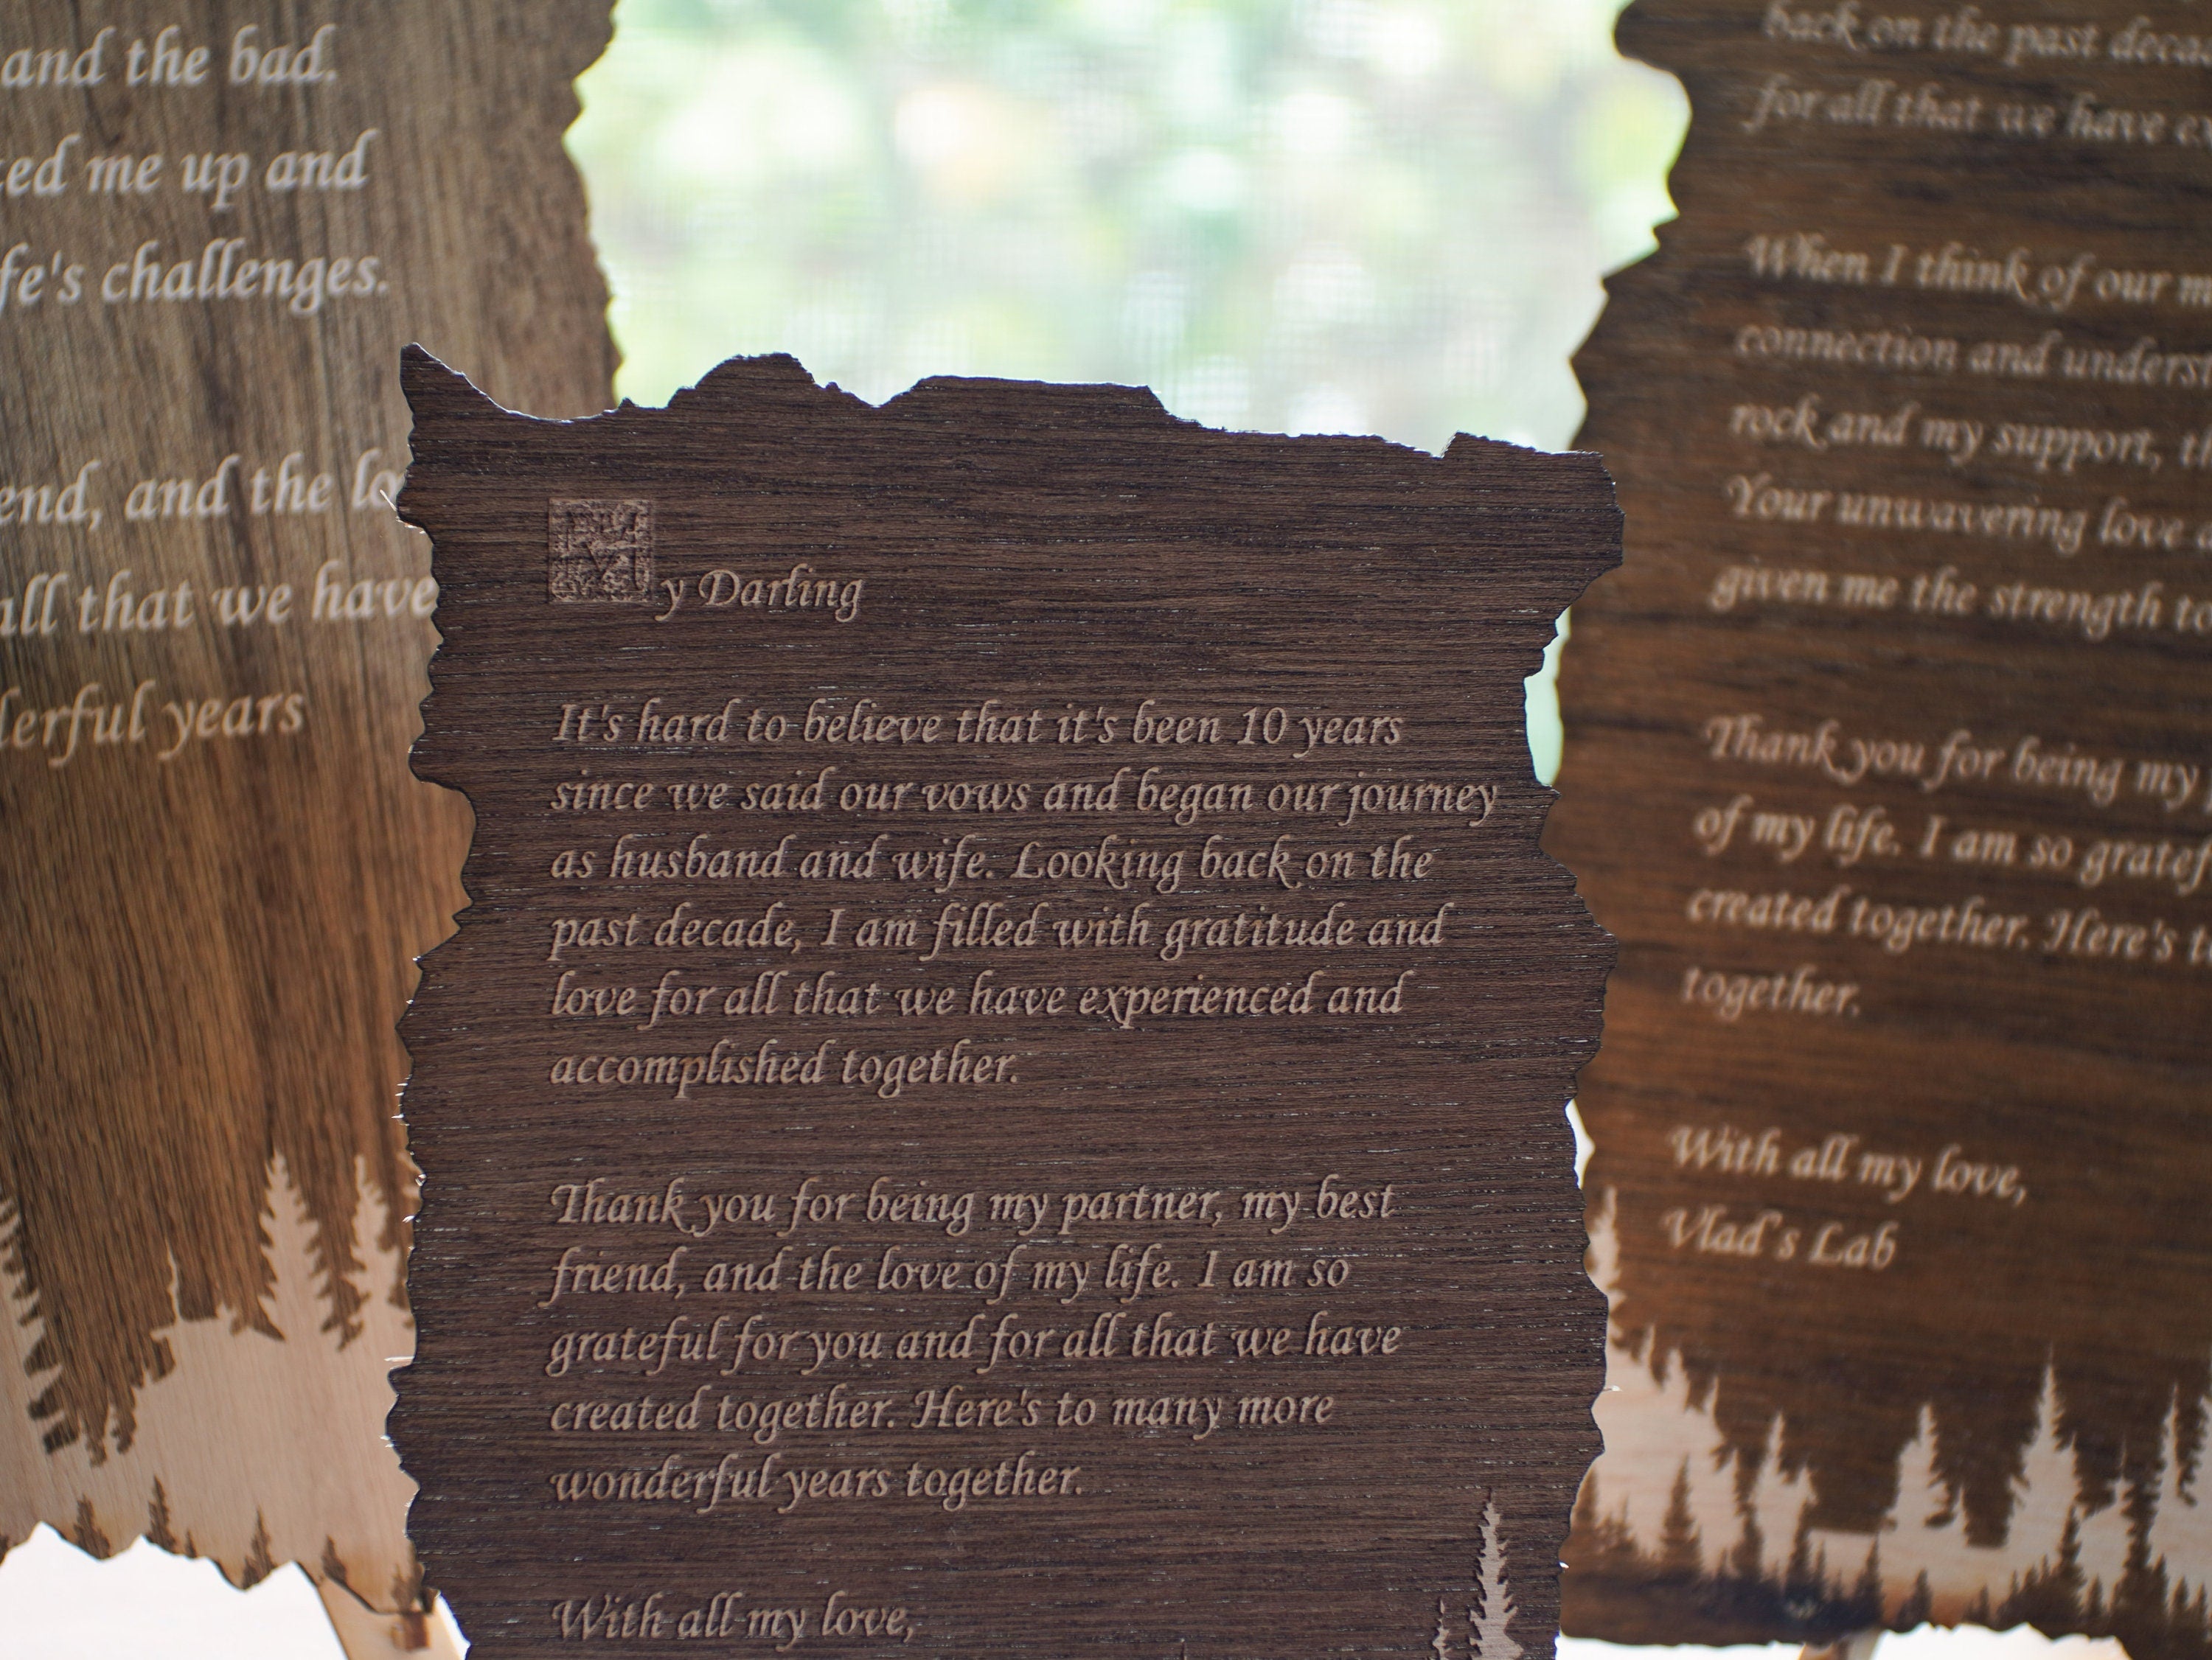 and the bad.
me up and
challenges.
and the
all that we have
years
My Darling
It's hard to believe that it's been 10 years
since we said our vows and began our journey
as husband and wife. Looking back on the
past decade, I am filled with gratitude and
love for all that we have experienced and
accomplished together.
Thank you for being my partner, my best
friend, and the love of my life. I am so
grateful for you and for all that we have
created together. Here's to many more
wonderful years together.
With all my love,
back on the past
for all that we have
When I think of our
connection and
rock and my support,
Your unwavering love
given me the strength
Thank you for being my
of my life. I am so
created together. Here's
together.
With all my love,
Vlad's Lab